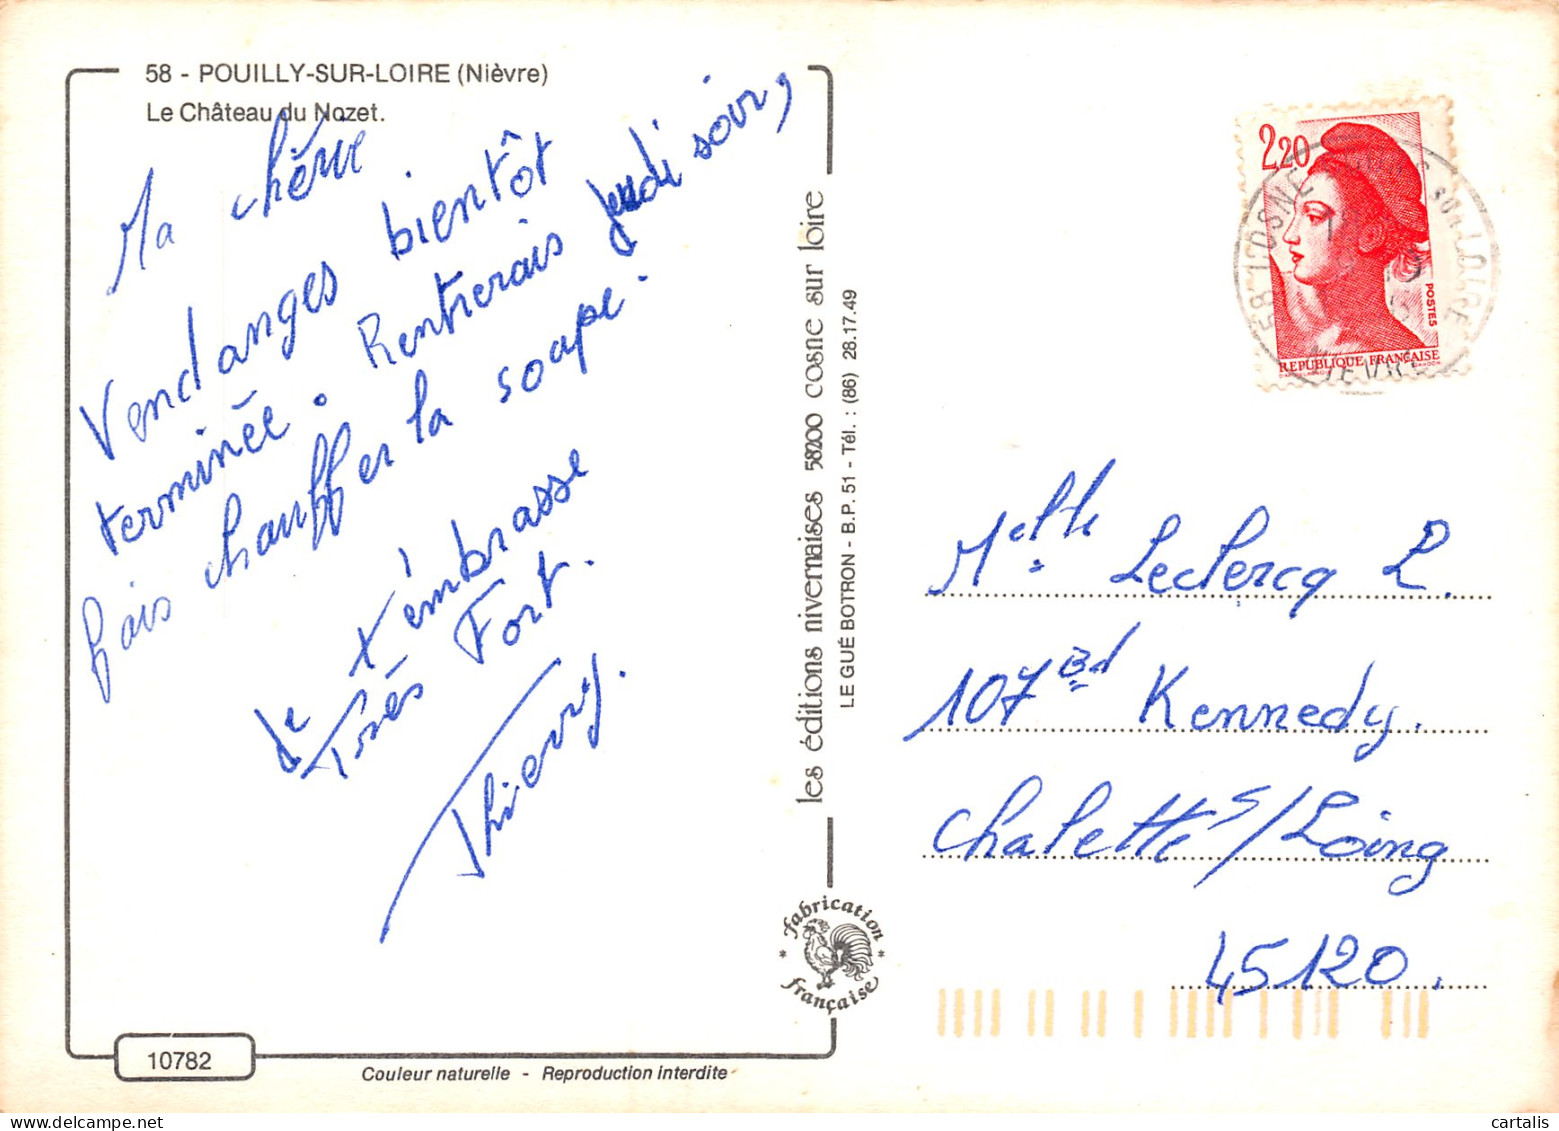 58 - POUILLY-SUR-LOIRE (Nièvre)
Le Château du Nozet.
Ma chérie
Vendanges bientôt
terminée. Rentrerais jeudi soir,
fais chauffer la soupe.
Je t'émbrasse
Très Fort.
Thierry.
les éditions nivernaises 58200 cosne sur loire
LE GUÉ BOTRON - B.P. 51 - Tél. : (86) 28.17.49
fabrication
française
10782
Couleur naturelle - Reproduction interdite
2,20
POSTES
REPUBLIQUE FRANÇAISE
58 COSNE
SUR LOIRE
NIEVRE
Melle Leclercq L.
107 Bd Kennedy.
Chalette s/Loing
45120.
cartalis